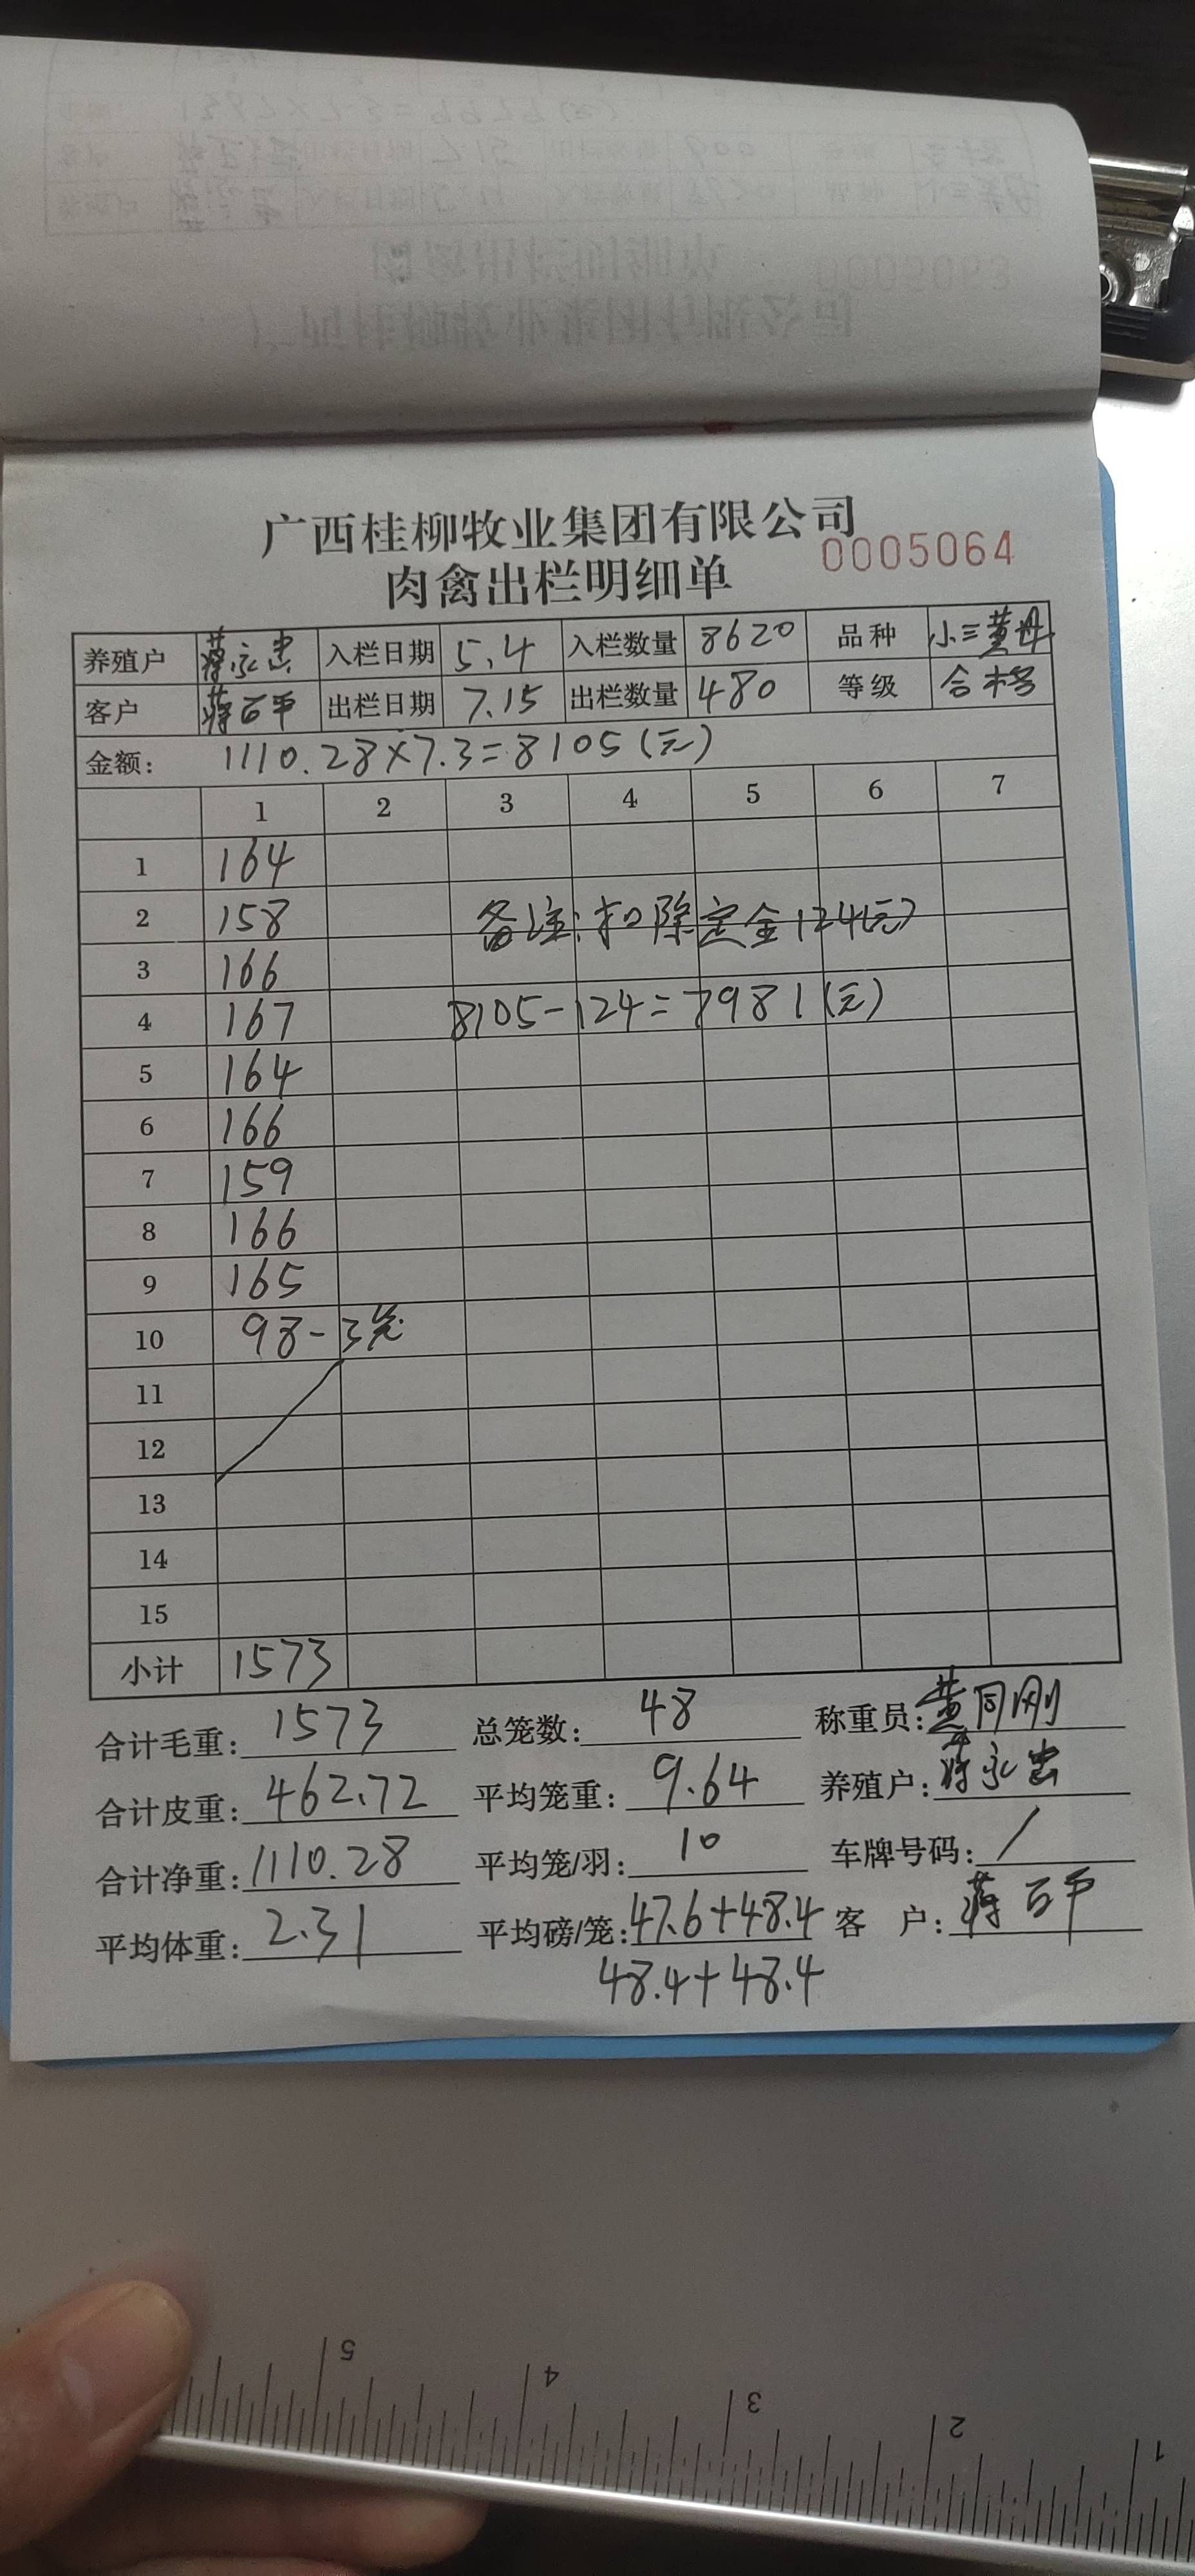 广西桂柳牧业集团有限公司
肉禽出栏明细单 0005064
养殖户 蒋永忠 入栏日期 5.4 入栏数量 8620 品种 小三黄母
客户 蒋百平 出栏日期 7.15 出栏数量 480 等级 合格
金额: 1110.28×7.3=8105(元)
1 2 3 4 5 6 7
1 164
2 158 备注:扣除定金124(元)
3 166
4 167 8105-124=7981(元)
5 164
6 166
7 159
8 166
9 165
10 98-3笼
11
12
13
14
15
小计 1573
合计毛重: 1573 总笼数: 48 称重员: 黄同刚
合计皮重: 462.72 平均笼重: 9.64 养殖户: 蒋永忠
合计净重: 1110.28 平均笼/羽: 10 车牌号码: /
平均体重: 2.31 平均磅/笼: 47.6+48.4 客 户: 蒋百平
48.4+48.4
5 4 3 2 1